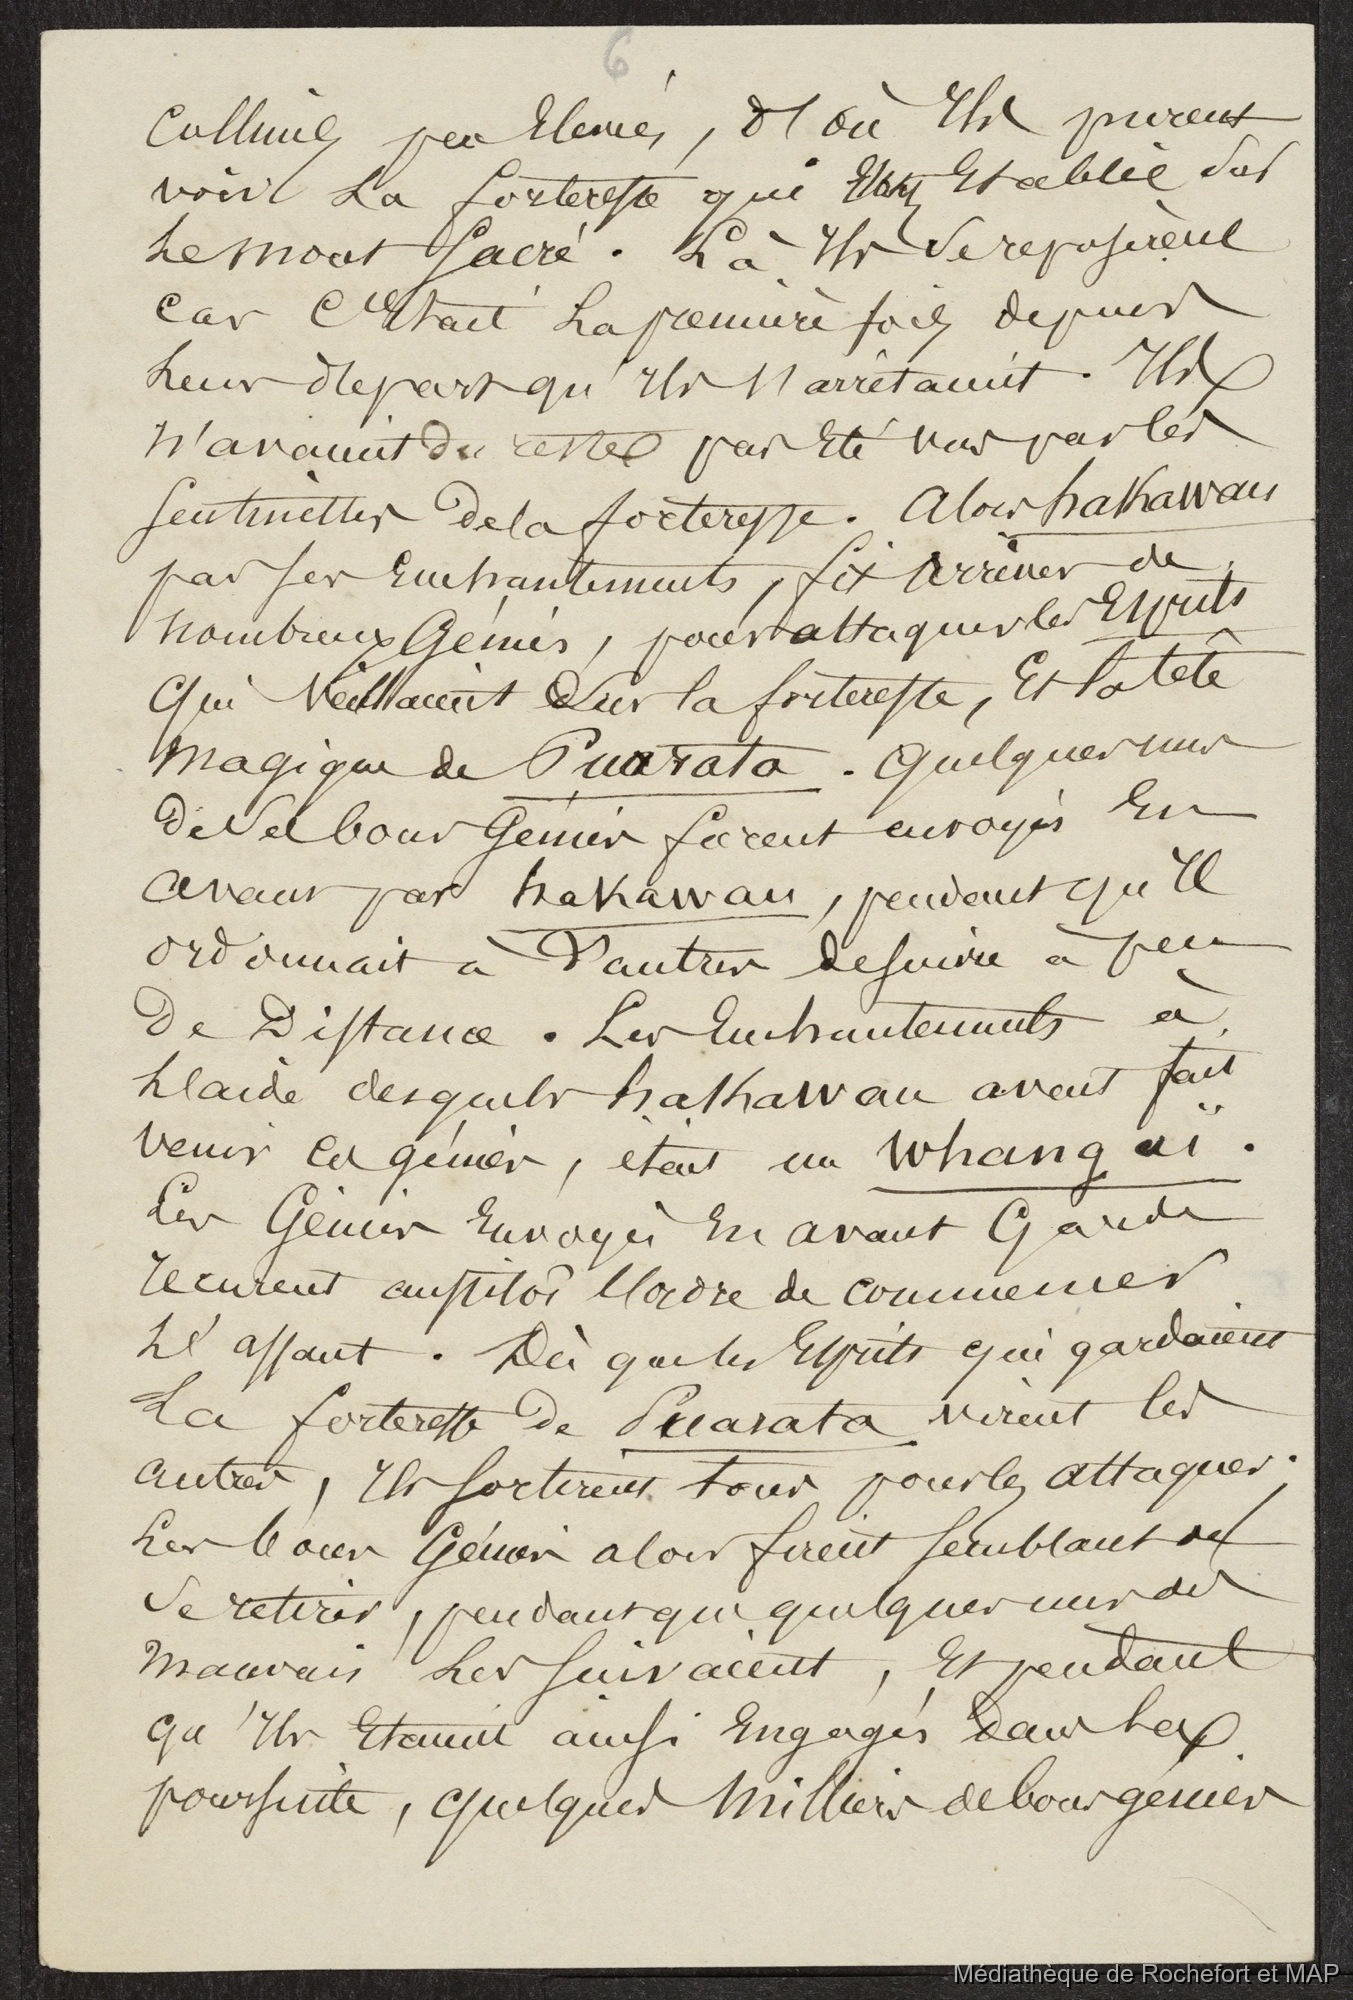 6
collines peu Elevées, d'où Ils purent
voir La forteresse qui Est Etablie sur
Le Mont Sacré. Là Ils Se reposèrent
car C'était La première fois depuis
Leur départ qu'Ils s'arrêtaient. Ils
N'avaient Du reste pas Eté vus par les
Sentinelles De la forteresse. Alors hakawau
par ses Enchantements, fit arriver de
Nombreux Génies, pour attaquer les Esprits
Qui Veillaient Sur la forteresse, Et la tête
Magique de Puarata. Quelques uns
De Ses bons Génies furent envoyés En
avant par hakawau, pendant qu'Il
ordonnait à D'autres de suivre à peu
De Distance. Les Enchantements à
L'aide desquels hakawau avait fait
venir ces génies, était un Whangaï.
Les Génies Envoyés En avant Garde
recurent aussitôt l'ordre de commencer
L'assaut. Dès que les Esprits qui gardaient
La forteresse De Puarata virent les
autres, Ils sortirent tous pour les attaquer.
Les bons Génies alors firent semblant de
Se retirer, pendant que quelques uns des
Mauvais Les suivaient, Et pendant
qu'Ils Etaient ainsi Engagés Dans La
poursuite, quelques Milliers de bons génies
Médiathèque de Rochefort et MAP